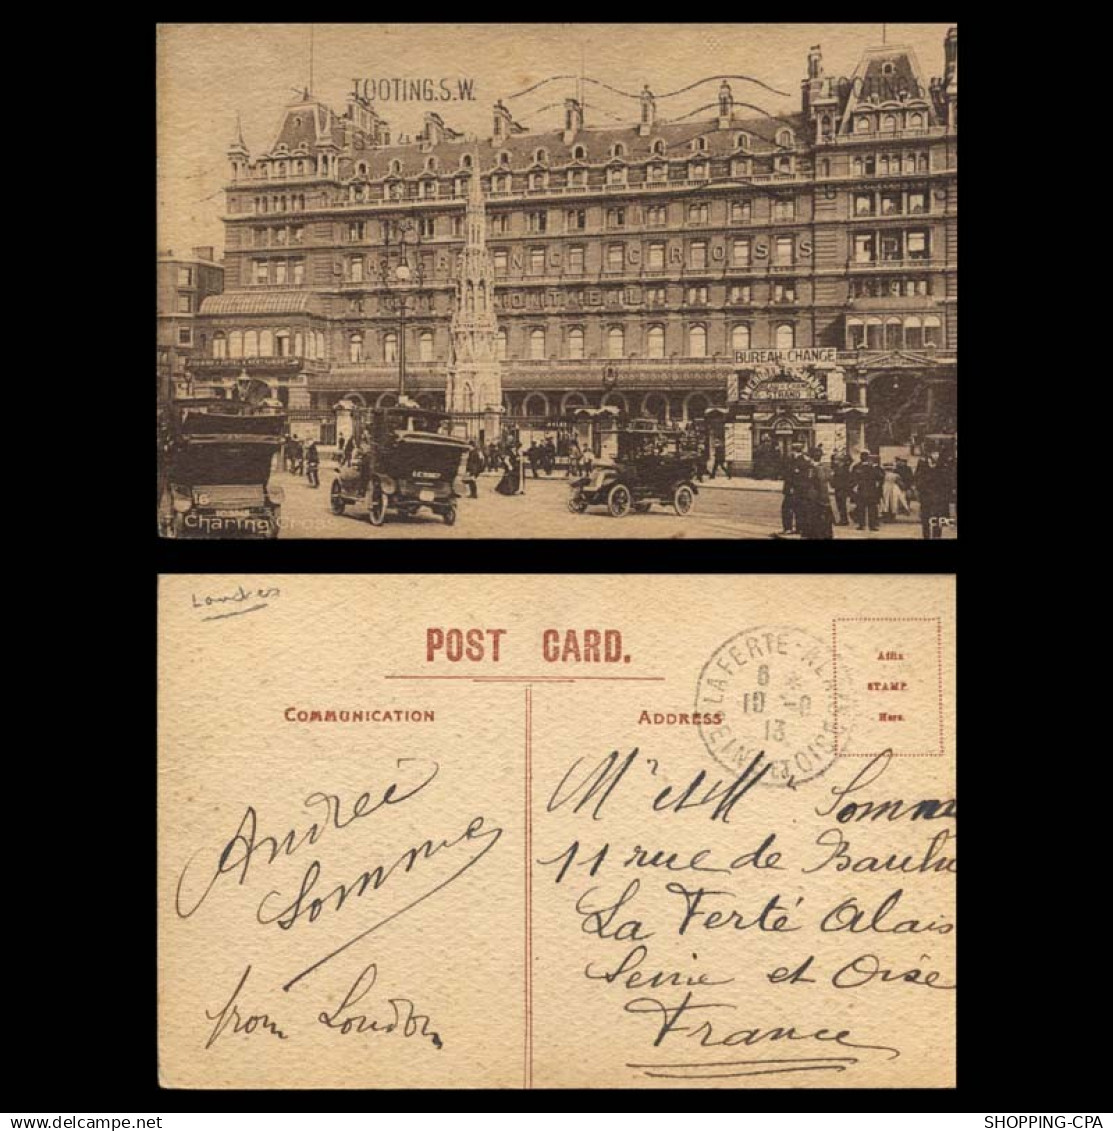 TOOTING.S.W.
TOOTING.S.W.
CHARING CROSS
HOTEL
BUREAU-CHANGE
STRAND
16
Charing Cross
CPC
Londres
POST CARD.
COMMUNICATION
ADDRESS
Affix
STAMP
Here.
LA FERTE-ALAIS
6 *
10 -0
13
SEINE & OISE
Andrée
Somme
from London
Mr et M Somme
11 rue de Baulne
La Ferté Alais
Seine et Oise
France
SHOPPING-CPA